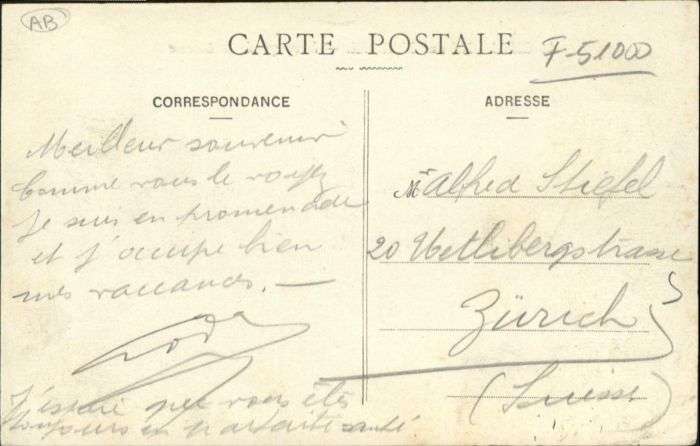 AB
CARTE POSTALE
F-51000
CORRESPONDANCE
Meilleur souvenir
Comme vous le voyez
Je suis en promenade
et j'occupe bien
mes vaccances. —
J'espère que vous êtes
toujours en parfaite santé
ADRESSE
Mr Alfred Stiefel
20 Uetlibergstrasse
Zürich
(Suisse)